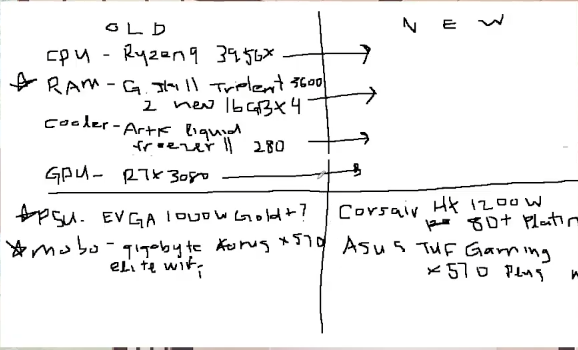 OLD
NEW
CPU - Ryzen 9 3950x
RAM - G. Skill Trident 3600
2 new 16GB x 4
Cooler - Artic liquid
freezer II 280
GPU - RTX 3080
PSU - EVGA 1000W Gold+?
Corsair HX 1200W
80+ Platin
mobo - gigabyte Aorus x570
elite wifi
Asus TUF Gaming
x570 Plus